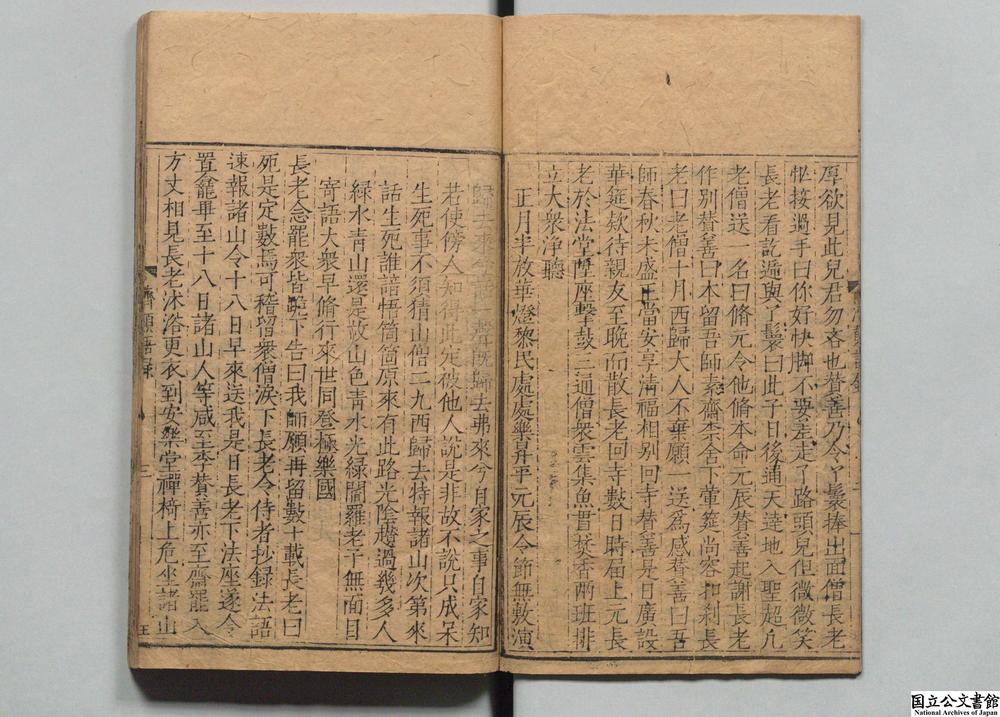 厚欲見此兒君勿吝也賛善乃令丫鬟捧出面僧長老
忙接過手曰你好快脚不要差走了路頭兒但微微笑
長老看訖遞與了鬟曰此子日後通天達地入聖超凡
老僧送一名曰脩元令他脩本命元辰賛善起謝長老
作別賛善曰本留吾師素齋柰舍下葷筵尚容扣刹長
老曰老僧十月西歸大人不棄願 送爲感賛善曰吾
師春秋未盛正當安享清福相別回寺賛善是日廣設
華筵欵待親友至晚而散長老回寺數日時屆上元長
老於法堂陞座擊鼓三通僧衆雲集魚貫焚香兩班排
立大衆淨聽
正月半放華燈黎民處處樂昇平元辰令節無敷演
歸去來兮 一聲旣歸去弗來兮自家之事自家知
若使傍人知得此定被他人說是非故不說只成呆
生死事不須猜山僧二九西歸去特報諸山次第來
話生死誰諳悟箇箇原來有此路光陰趲過幾多人
綠水靑山還是故山色靑水光綠閻羅老子無面目
寄語大衆早脩行來世同登極樂國
長老念罷衆皆跪下告曰我師願再留數十載長老曰
死是定數焉可稽留衆僧淚下長老令侍者抄録法語
速報諸山令十八日早來送我是日長老下法座遂令
置龕畢至十八日諸山人等咸至李賛善亦至齋罷入
方丈相見長老沐浴更衣到安樂堂禪椅上危坐諸山
濟顚語録
三
五
国立公文書館
National Archives of Japan